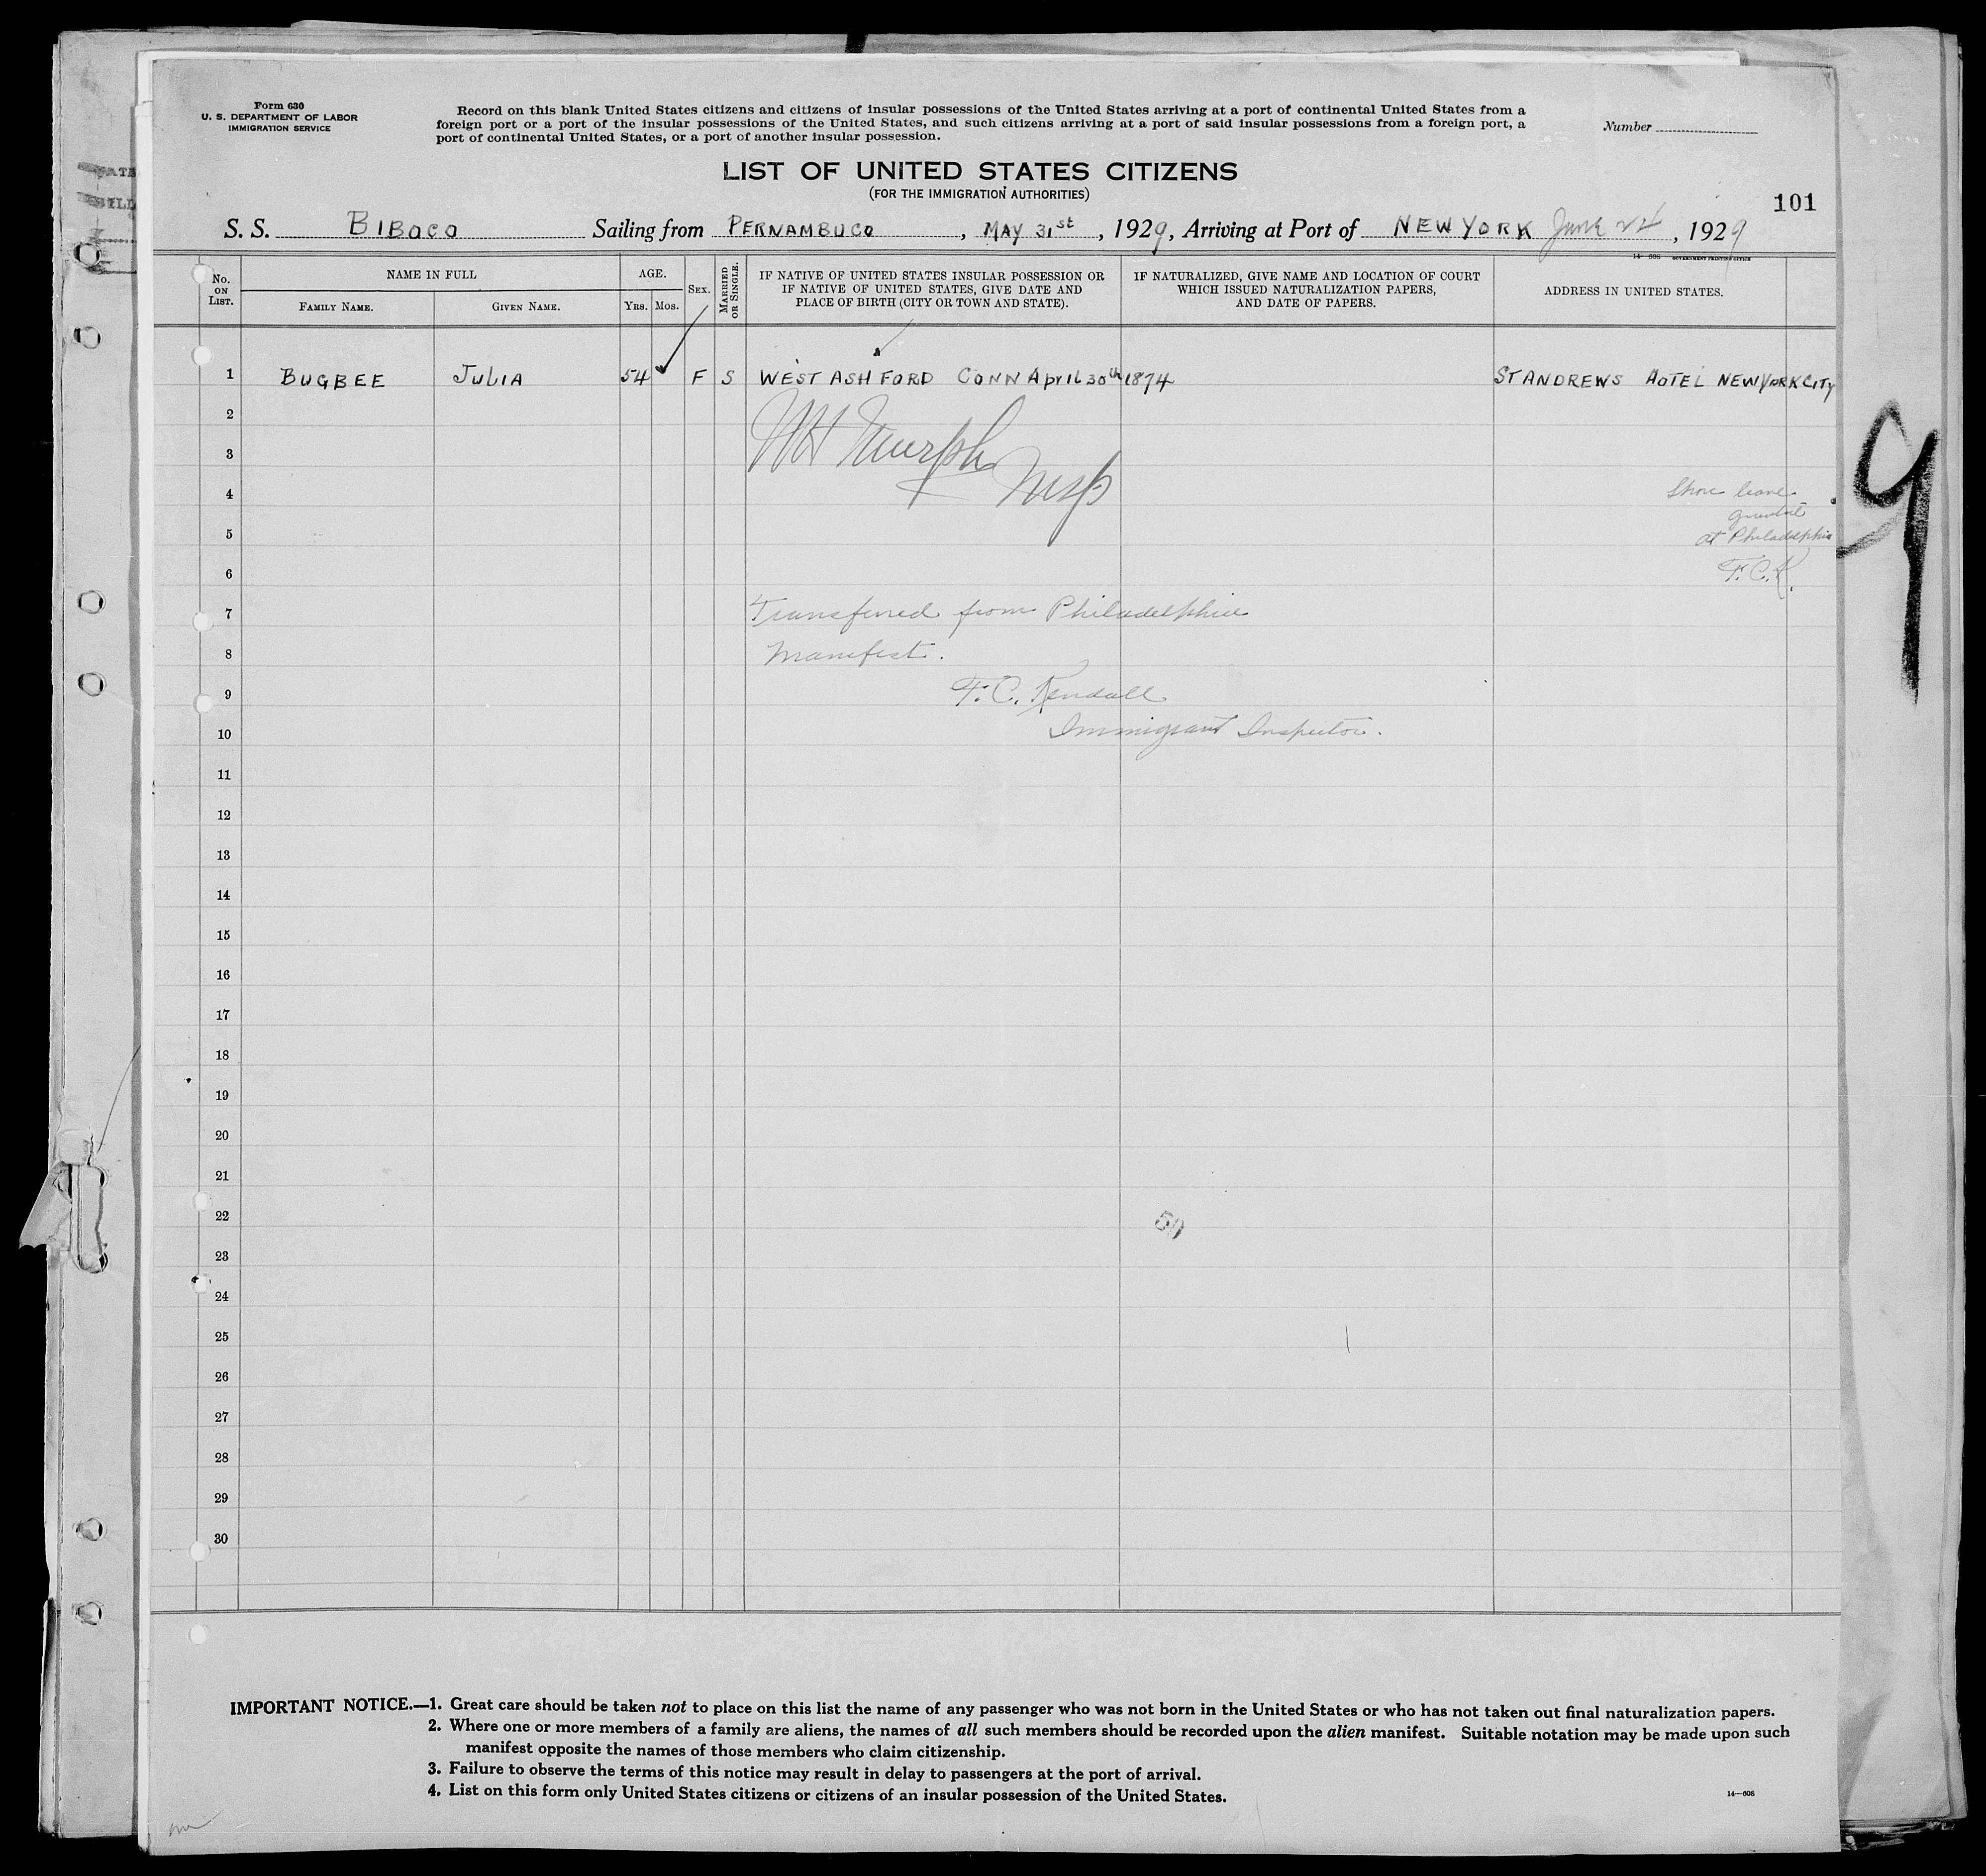 Form 630
U. S. DEPARTMENT OF LABOR
IMMIGRATION SERVICE
Record on this blank United States citizens and citizens of insular possessions of the United States arriving at a port of continental United States from a
foreign port or a port of the insular possessions of the United States, and such citizens arriving at a port of said insular possessions from a foreign port, a
port of continental United States, or a port of another insular possession.
Number
LIST OF UNITED STATES CITIZENS
(FOR THE IMMIGRATION AUTHORITIES)
101
S. S. BIBOCO Sailing from PERNAMBUCO, MAY 31st, 1929, Arriving at Port of NEW YORK June 24, 1929
14-608 GOVERNMENT PRINTING OFFICE
No. ON LIST.
NAME IN FULL
FAMILY NAME.
GIVEN NAME.
AGE.
YRS.
MOS.
SEX.
MARRIED OR SINGLE.
IF NATIVE OF UNITED STATES INSULAR POSSESSION OR
IF NATIVE OF UNITED STATES, GIVE DATE AND
PLACE OF BIRTH (CITY OR TOWN AND STATE).
IF NATURALIZED, GIVE NAME AND LOCATION OF COURT
WHICH ISSUED NATURALIZATION PAPERS,
AND DATE OF PAPERS.
ADDRESS IN UNITED STATES.
1 BUGBEE JULIA 54 F S WEST ASHFORD CONN April 30th 1874 ST ANDREWS HOTEL NEW YORK CITY
2
3
4
Shore leave
granted
5
at Philadelphia
6
F. C. K.
7 Transferred from Philadelphia
8 Manifest.
9 F. C. Kendall
10 Immigrant Inspector.
11
12
13
14
15
16
17
18
19
20
21
22
50
23
24
25
26
27
28
29
30
9
IMPORTANT NOTICE.—1. Great care should be taken not to place on this list the name of any passenger who was not born in the United States or who has not taken out final naturalization papers.
2. Where one or more members of a family are aliens, the names of all such members should be recorded upon the alien manifest. Suitable notation may be made upon such
manifest opposite the names of those members who claim citizenship.
3. Failure to observe the terms of this notice may result in delay to passengers at the port of arrival.
4. List on this form only United States citizens or citizens of an insular possession of the United States.
14—608